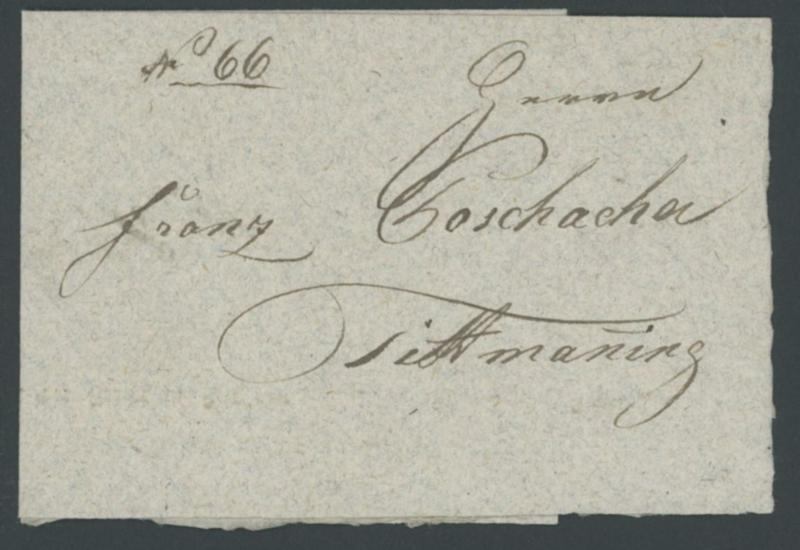 No 66
Herrn
Franz Poschacher
Tittmañing